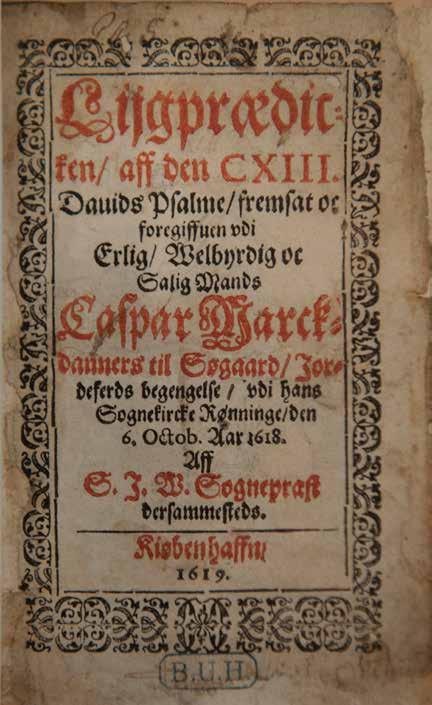 Lijgprædic-
ken/ aff den CXIII.
Dauids Psalme/ fremsat oc
foregiffuen vdi
Erlig/ Welbyrdig oc
Salig Mands
Caspar Marck-
danners til Søgaard/ Jor-
deferds begengelse/ vdi hans
Sognekircke Rønninge/ den
6. Octob. Aar 1618.
Aff
S. J. W. Sognepræst
dersammesteds.
Kiøbenhaffn/
1619.
B.U.H.